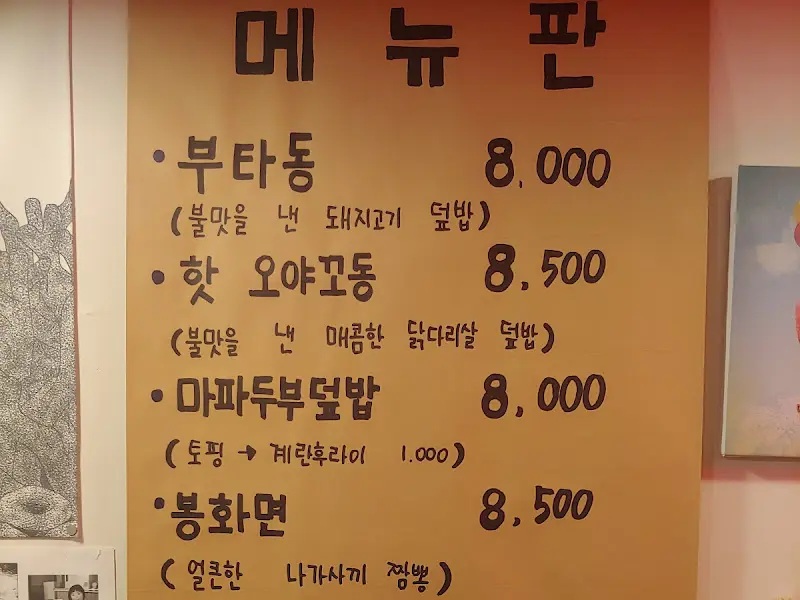 메뉴판
• 부타동 8,000
(불맛을 낸 돼지고기 덮밥)
• 핫 오야꼬동 8,500
(불맛을 낸 매콤한 닭다리살 덮밥)
• 마파두부덮밥 8,000
(토핑 → 계란후라이 1.000)
• 봉화면 8,500
(얼큰한 나가사끼 짬뽕)